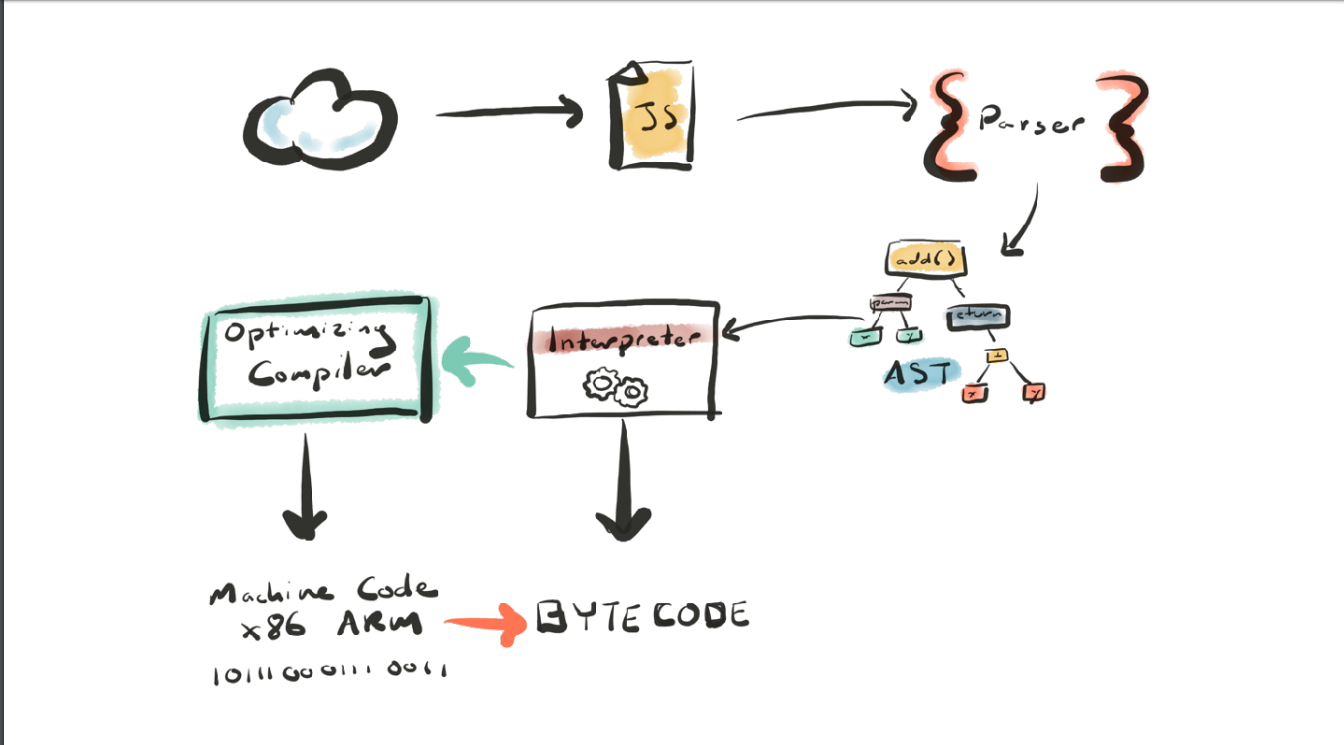 JS
Parser
add()
param
return
x
y
+
AST
x
y
Interpreter
Optimizing
Compiler
Machine Code
x86 ARM
10111000111 0011
BYTECODE